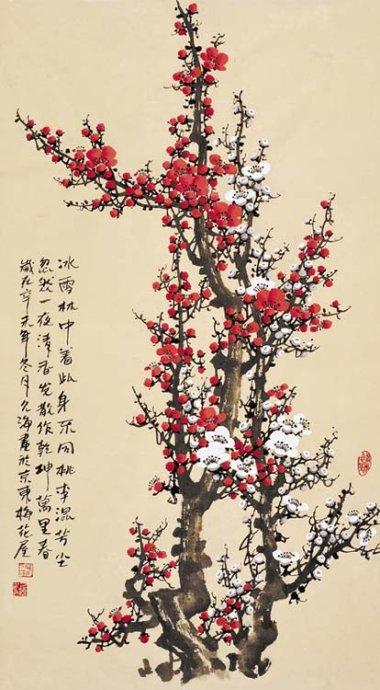 冰雪林中着此身不同桃李混芳尘
忽然一夜清香发散作乾坤萬里春
歲在辛年冬月海畫於京東梅花屋